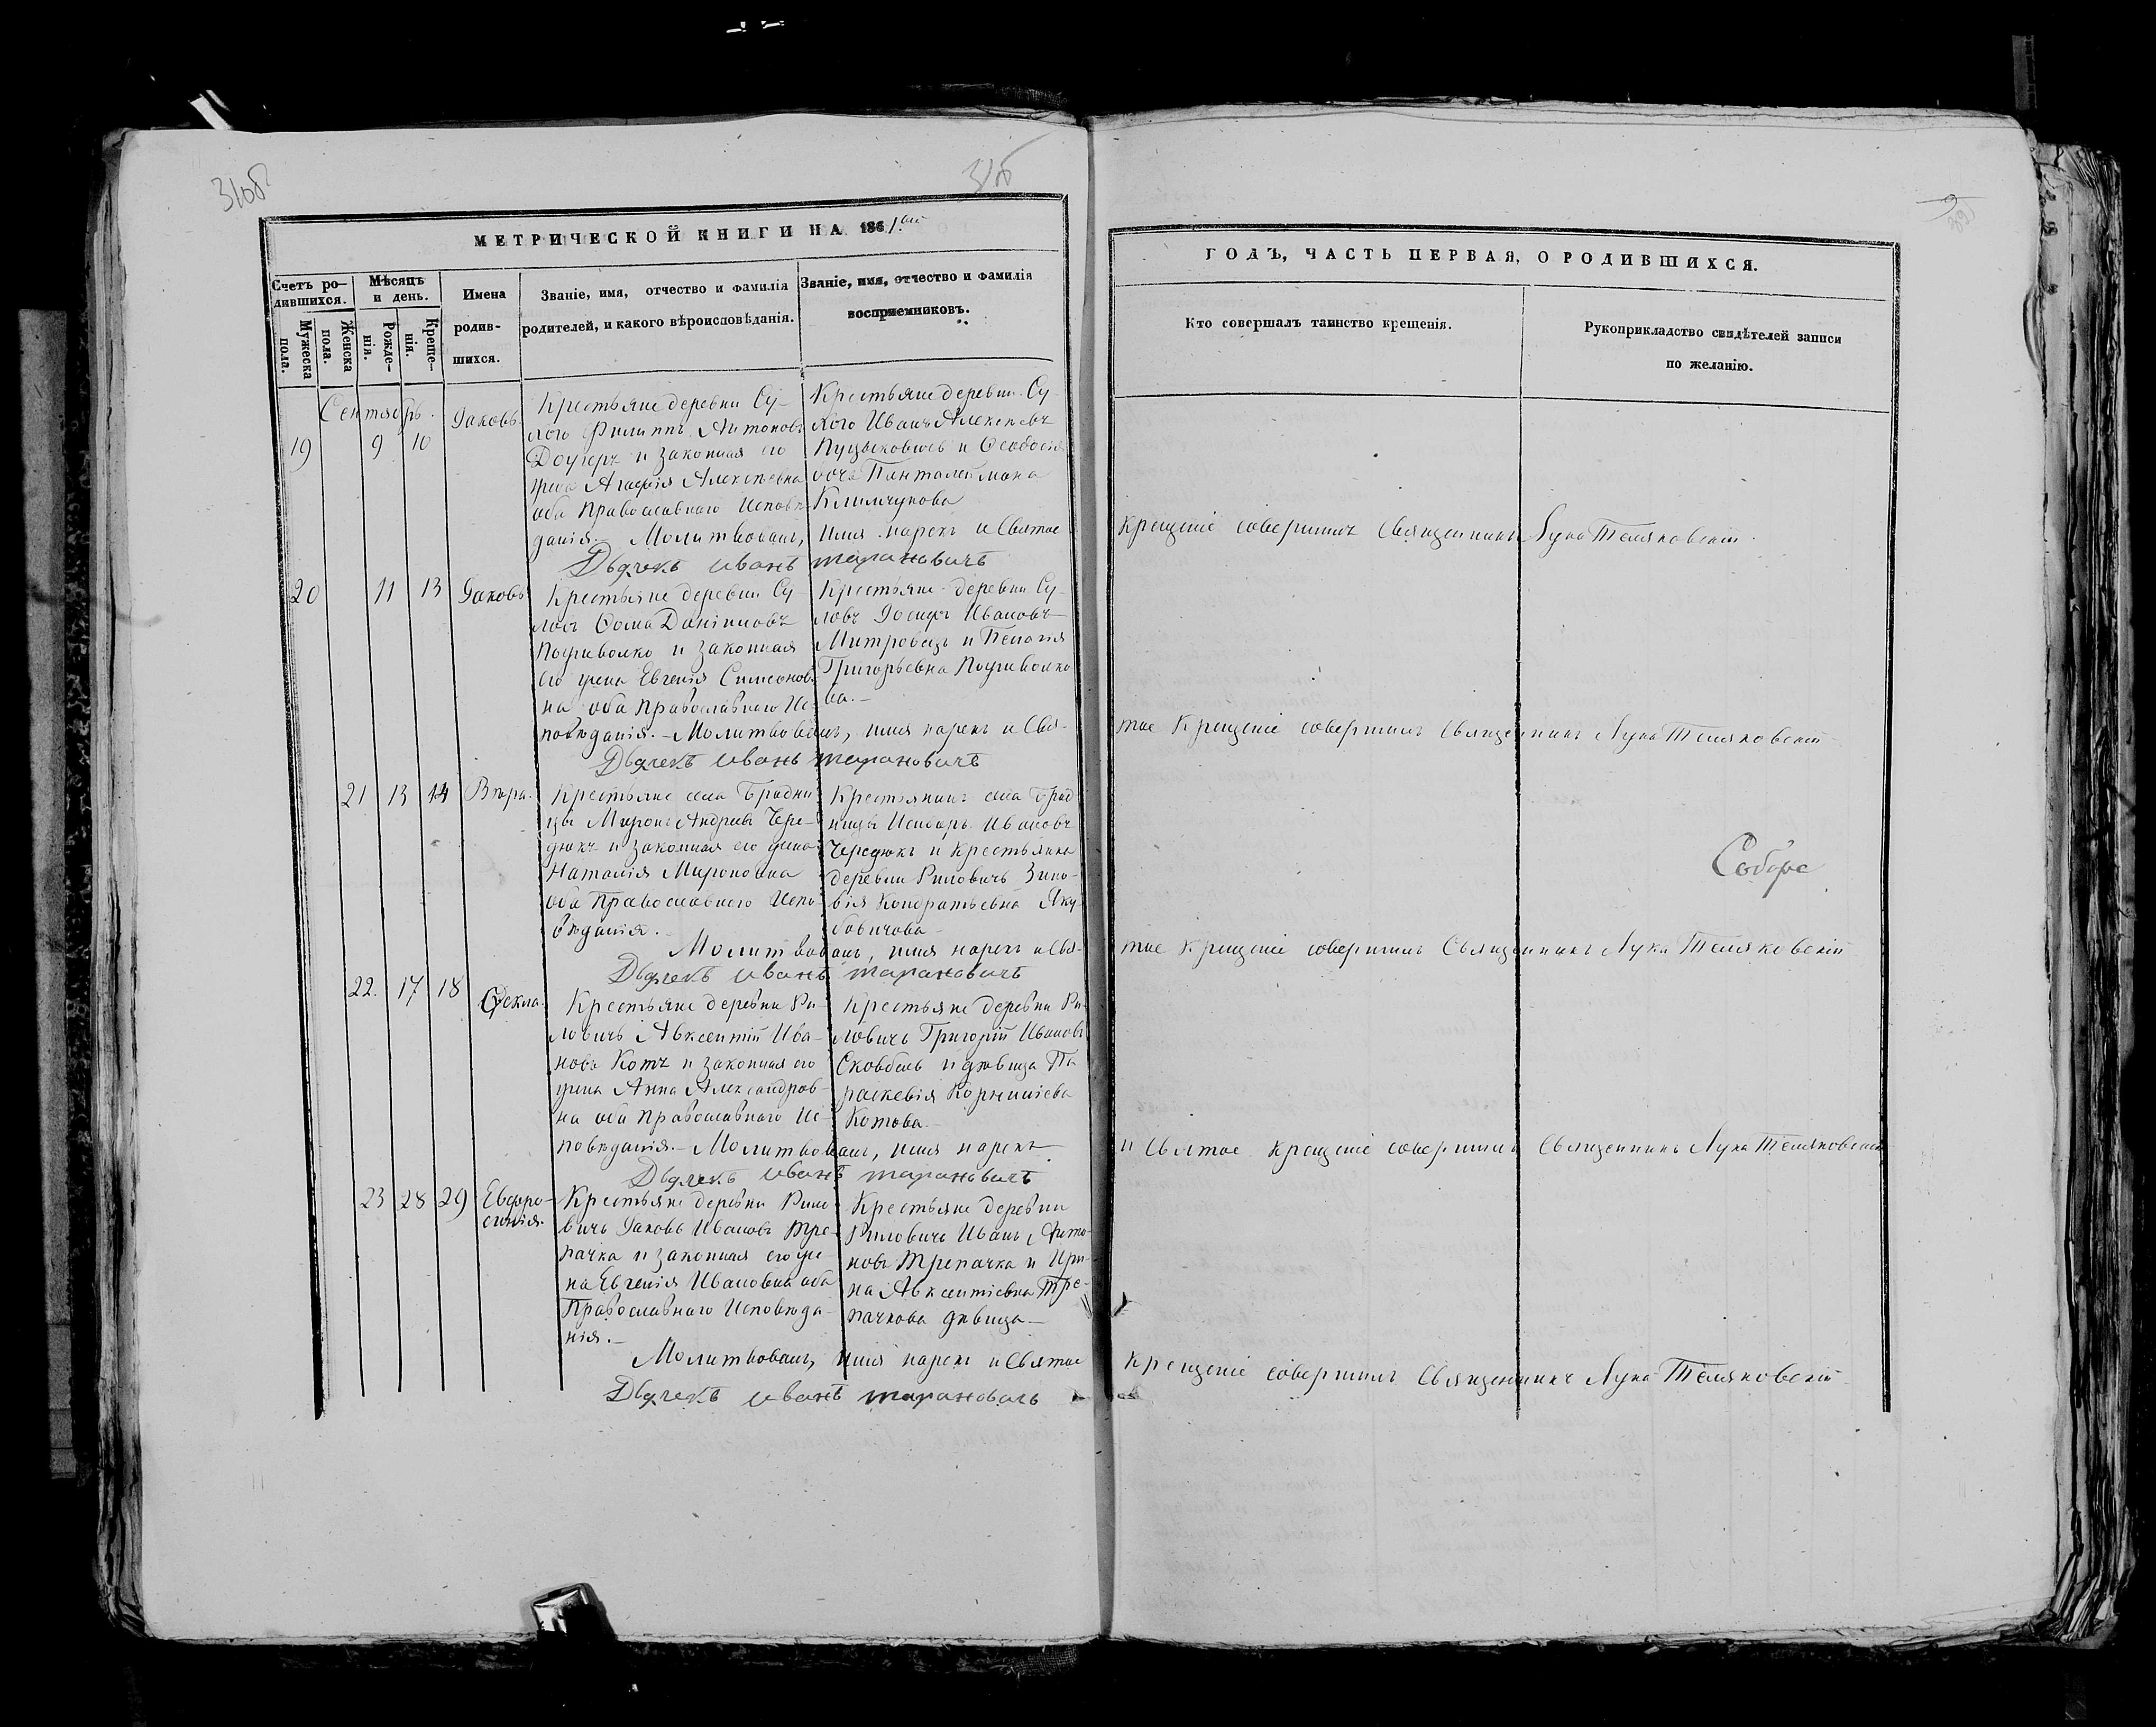 МЕТРИЧЕСКОЙ КНИГИ НА 1861.
Счетъ ро-
дившихся.
Мужеска
пола.
Женска
пола.
Мѣсяцъ
и день.
Рожде-
нія.
Креще-
нія.
Имена
родив-
шихся.
Званіе, имя, отчество и фамилія
родителей, и какого вѣроисповѣданія.
Званіе, имя, отчество и фамилія
восприемниковъ.
Сентябрь.
19 9 10
Іаковъ
Крестьяне деревни Су-
Филиппъ Антоновъ
и законная его
жена Агафія Алексѣевна
оба Православнаго Исповѣ-
данія. Молитвовалъ,
Крестьяне деревни Су-
Иванъ Алексѣевъ
и Феодосія
дочь Панталеймона
Климчукова
имя нарекъ и Святое
Дьячекъ иванъ тарановичъ
20 11 13
Іаковъ
Крестьяне деревни Су-
Ѳома Даніиловъ
и законная
его жена Евгенія Симеонов-
на оба Православнаго Ис-
повѣданія. – Молитвовалъ, имя нарекъ и Свя-
Крестьяне деревни Су-
Іосифъ Ивановъ
и Пелагія
Григорьевна
ва. –
Дьячекъ иванъ тарановичъ
21 13 14
Вѣра.
Крестьяне села Бродни-
цы Миронъ Андреевъ Чере-
дюкъ и законная его жена
Наталія Мироновна
оба Православнаго Испо-
вѣданія. –
Крестьянинъ села Брод-
ницы Ивановъ
Чередюкъ и Крестьянка
деревни Риловичъ Зино-
вія Кондратьевна Яку-
бовичова
Молитвовалъ, имя нарекъ и Свя-
Дьячекъ иванъ тарановичъ
22. 17 18
Ѳекла.
Крестьяне деревни Ри-
ловичъ Авксентій Ива-
новъ Котъ и законная его
жена Анна Александров-
на оба Православнаго Ис-
повѣданія. – Молитвовалъ, имя нарекъ
Крестьяне деревни Ри-
ловичъ Григорій Ивановъ
и дѣвица Па-
раскевія Корниліева
Котова. –
Дьячекъ иванъ тарановичъ
23 28 29
Евфро-
синія.
Крестьяне деревни Рило-
вичъ Іаковъ Ивановъ Тре-
пачка и законная его же-
на Евгенія Ивановна оба
Православнаго Исповѣда-
нія. –
Крестьяне деревни
Риловичъ Иванъ Анто-
новъ Трепачка и Ири-
на Авксентіевна Тре-
пачкова дѣвица –
Молитвовалъ, имя нарекъ и Святое
Дьячекъ иванъ тарановичъ
ГОДЪ, ЧАСТЬ ПЕРВАЯ, О РОДИВШИХСЯ.
Кто совершалъ таинство крещенія.
Рукоприкладство свидѣтелей записи
по желанію.
Крещеніе совершилъ Священникъ Лука Теляковскій.
тое Крещеніе совершилъ Священникъ Лука Теляковскій
тое Крещеніе совершилъ Священникъ Лука Теляковскій
и Святое Крещеніе совершилъ Священникъ Лука Теляковскій
Крещеніе совершилъ Священникъ Лука Теляковскій